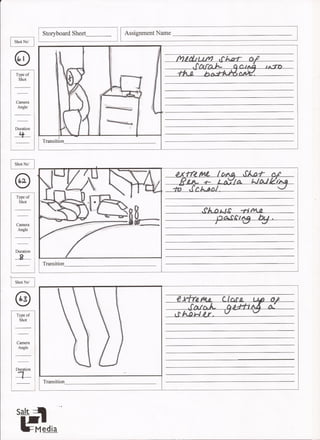 Storyboard Sheet________ Assignment Name
Shot No'
61
Type of
Shot
Camera
Angle
Duration
4
Transition
medium shot of
Sarah going into
the bathroom.
Shot No'
62
Type of
Shot
Camera
Angle
Duration
8
Transition
extreme long shot of
Ben + Layla walking
to school
shows time
passing by.
Shot No'
63
Type of
Shot
Camera
Angle
Duration
7
Transition
extreme close up of
Sarah getting a
shower.
Salt
Media